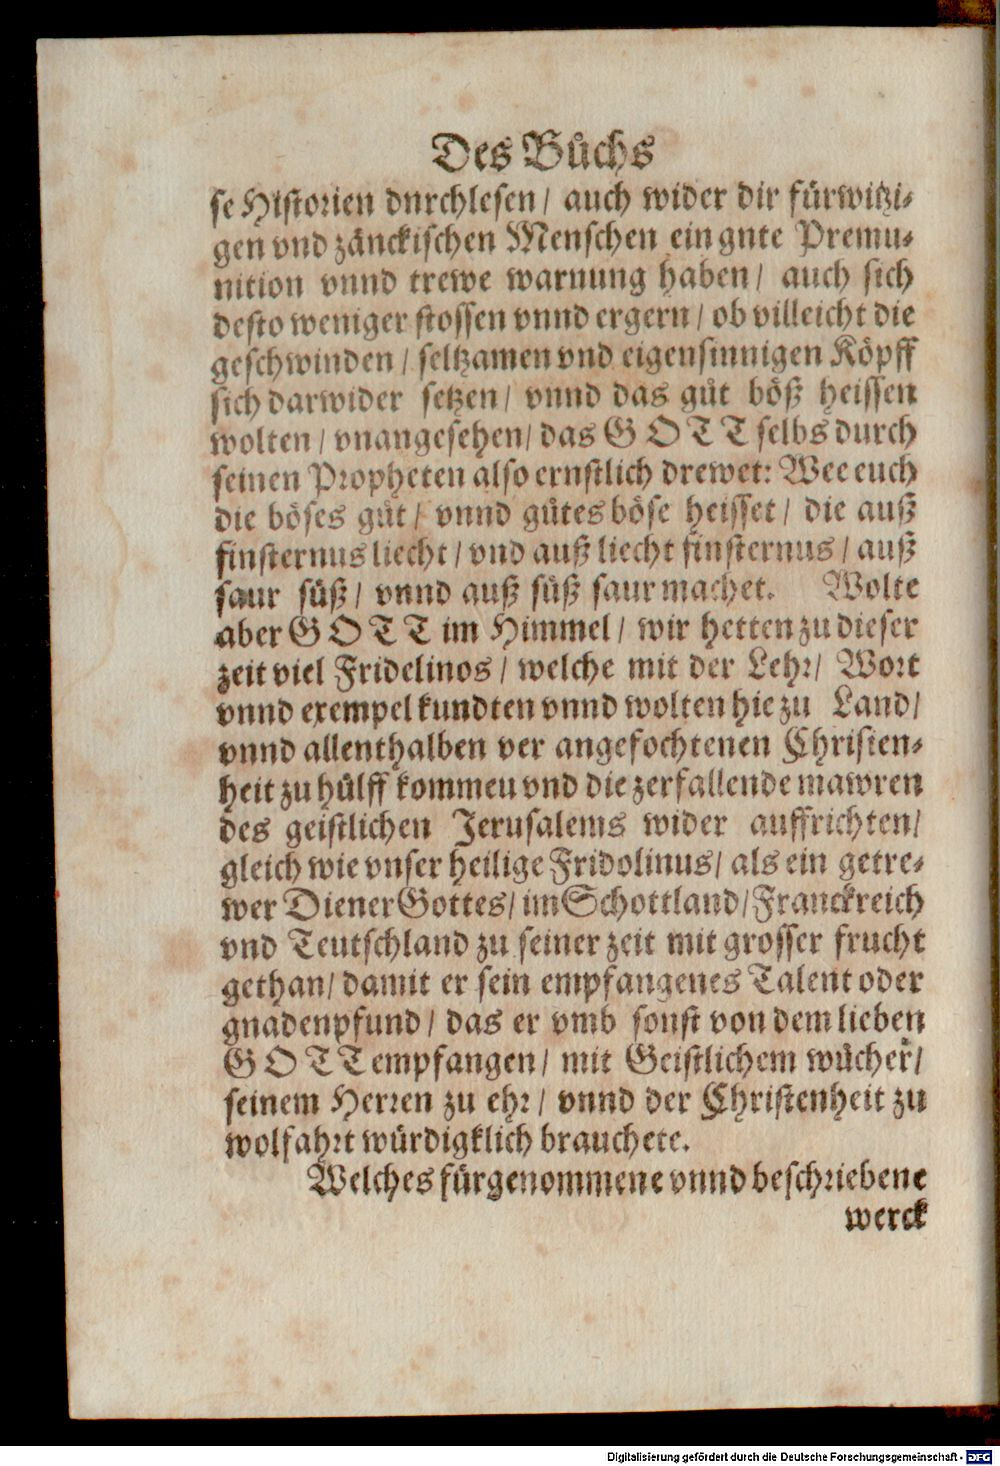 Des Bůchs
se Historien dnrchlesen / auch wider dir fürwitzi-
gen vnd zänckischen Menschen ein gnte Premu-
nition vnnd trewe warnung haben / auch sich
desto weniger stossen vnnd ergern / ob villeicht die
geschwinden / seltzamen vnd eigensinnigen Köpff
sich darwider setzen / vnnd das gůt böß heissen
wolten / vnangesehen / das GOTT selbs durch
seinen Propheten also ernstlich drewet: Wee euch
die böses gůt / vnnd gůtes böse heisset / die auß
finsternus liecht / vnd auß liecht finsternus / auß
saur süß / vnnd auß süß saur machet. Wolte
aber GOTT im Himmel / wir hetten zu dieser
zeit viel Fridelinos / welche mit der Lehr / Wort
vnnd exempel kundten vnnd wolten hie zu Land /
vnnd allenthalben ver angefochtenen Christen-
heit zu hülff kommeu vnd die zerfallende mawren
des geistlichen Jerusalems wider auffrichten /
gleich wie vnser heilige Fridolinus / als ein getre-
wer Diener Gottes / im Schottland / Franckreich
vnd Teutschland zu seiner zeit mit grosser frucht
gethan / damit er sein empfangenes Talent oder
gnadenpfund / das er vmb sonst von dem lieben
GOTT empfangen / mit Geistlichem wůcher /
seinem Herren zu ehr / vnnd der Christenheit zu
wolfahrt würdigklich brauchete.
Welches fürgenommene vnnd beschriebene
werck
Digitalisierung gefördert durch die Deutsche Forschungsgemeinschaft - DFG